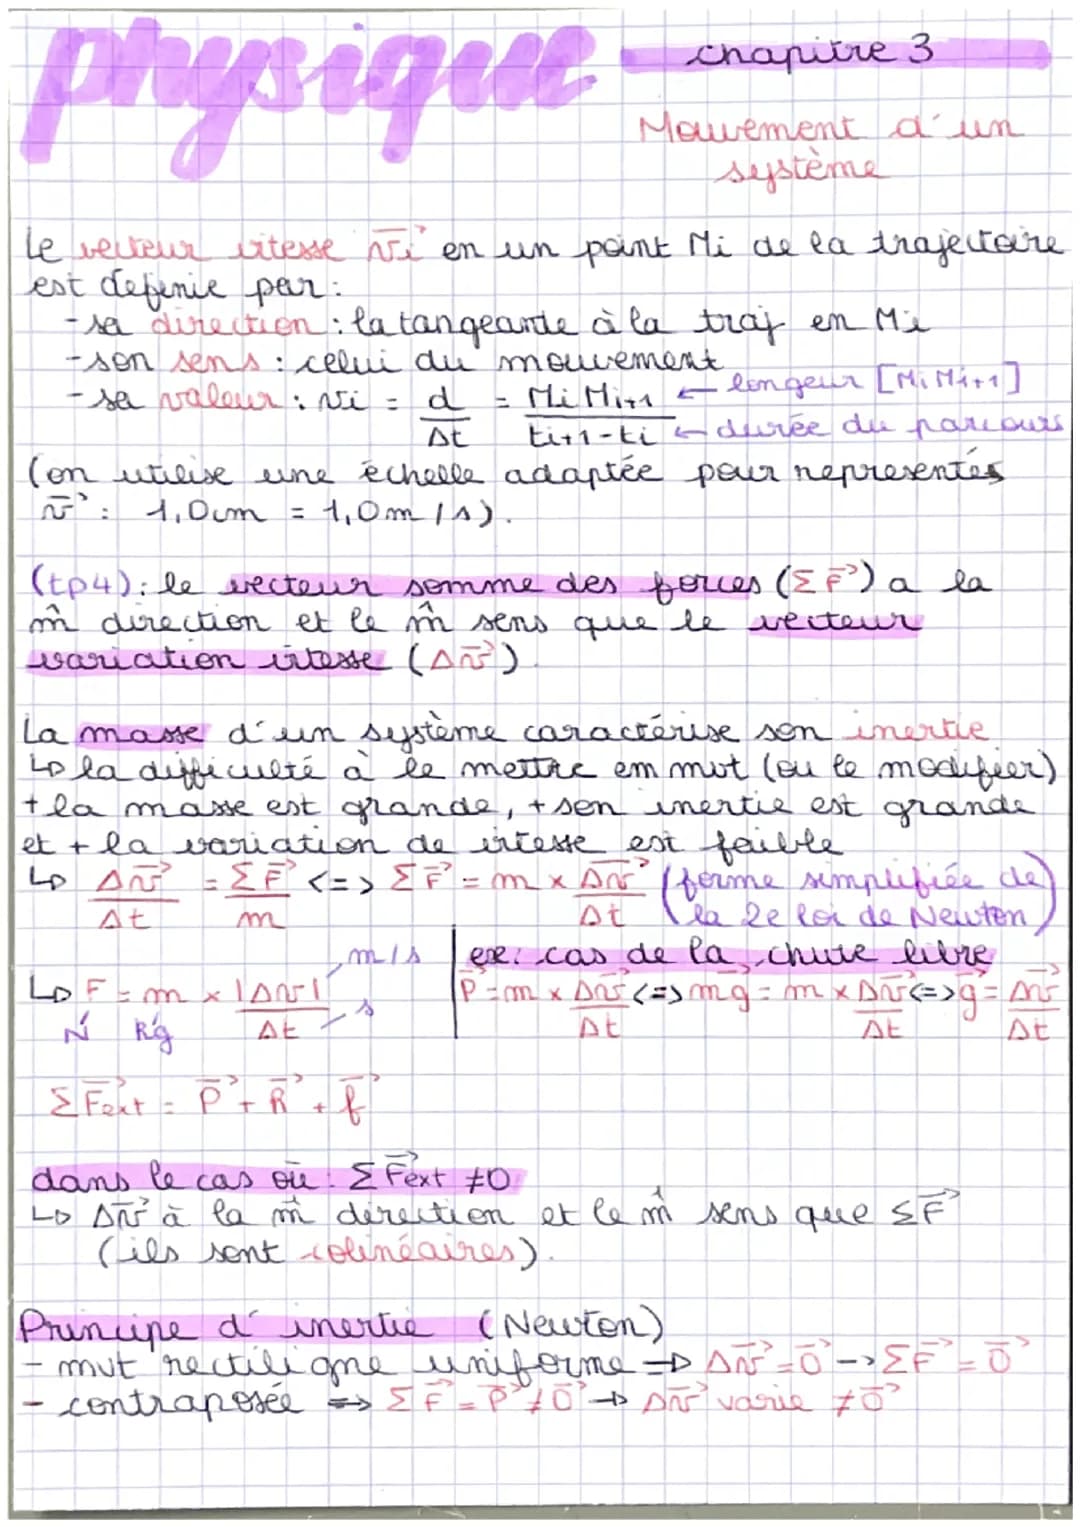 physique
chapitre 3
Mouvement d'un
système
Le vecteur vitesse v⃗i en un point Mi de la trajectoire
est definie par :
- sa direction : la tangeante à la traj en Mi
- son sens : celui du mouvement
- sa valeur : vi = d/Δt = MiMi+1/ti+1-ti ← longeur [MiMi+1] ← durée du parcours
(on utilise une échelle adaptée pour representés
v⃗ : 1,0cm = 1,0m/s).
(tp4) : le vecteur somme des forces (Σ F⃗) a la
m̂ direction et le m̂ sens que le vecteur
variation vitesse (Δv⃗).
La masse d'un système caractérise son inertie
↳ la difficulté à le mettre em mvt (ou le modifier)
+ la masse est grande, + son inertie est grande
et + la variation de vitesse est faible
↳ Δv⃗/Δt = ΣF⃗/m <=> ΣF⃗ = m × Δv⃗/Δt (forme simplifiée de la 2e loi de Newton)
↳ F = m × |Δv|/Δt m/s s
N Kg
ex : cas de la chute libre
P⃗ = m × Δv⃗/Δt <=> mg⃗ = m × Δv⃗/Δt <=> g⃗ = Δv⃗/Δt
ΣF⃗ext = P⃗ + R⃗ + f⃗
dans le cas où : ΣF⃗ext ≠0
↳ Δv⃗ à la m̂ direction et le m̂ sens que ΣF⃗
(ils sont colinéaires).
Principe d'inertie (Newton)
- mvt rectiligne uniforme ⇒ Δv⃗ = 0⃗ -> ΣF⃗ = 0⃗
- contraposée ⇒ ΣF⃗ = P⃗ ≠ 0⃗ → Δv⃗ varie ≠ 0⃗